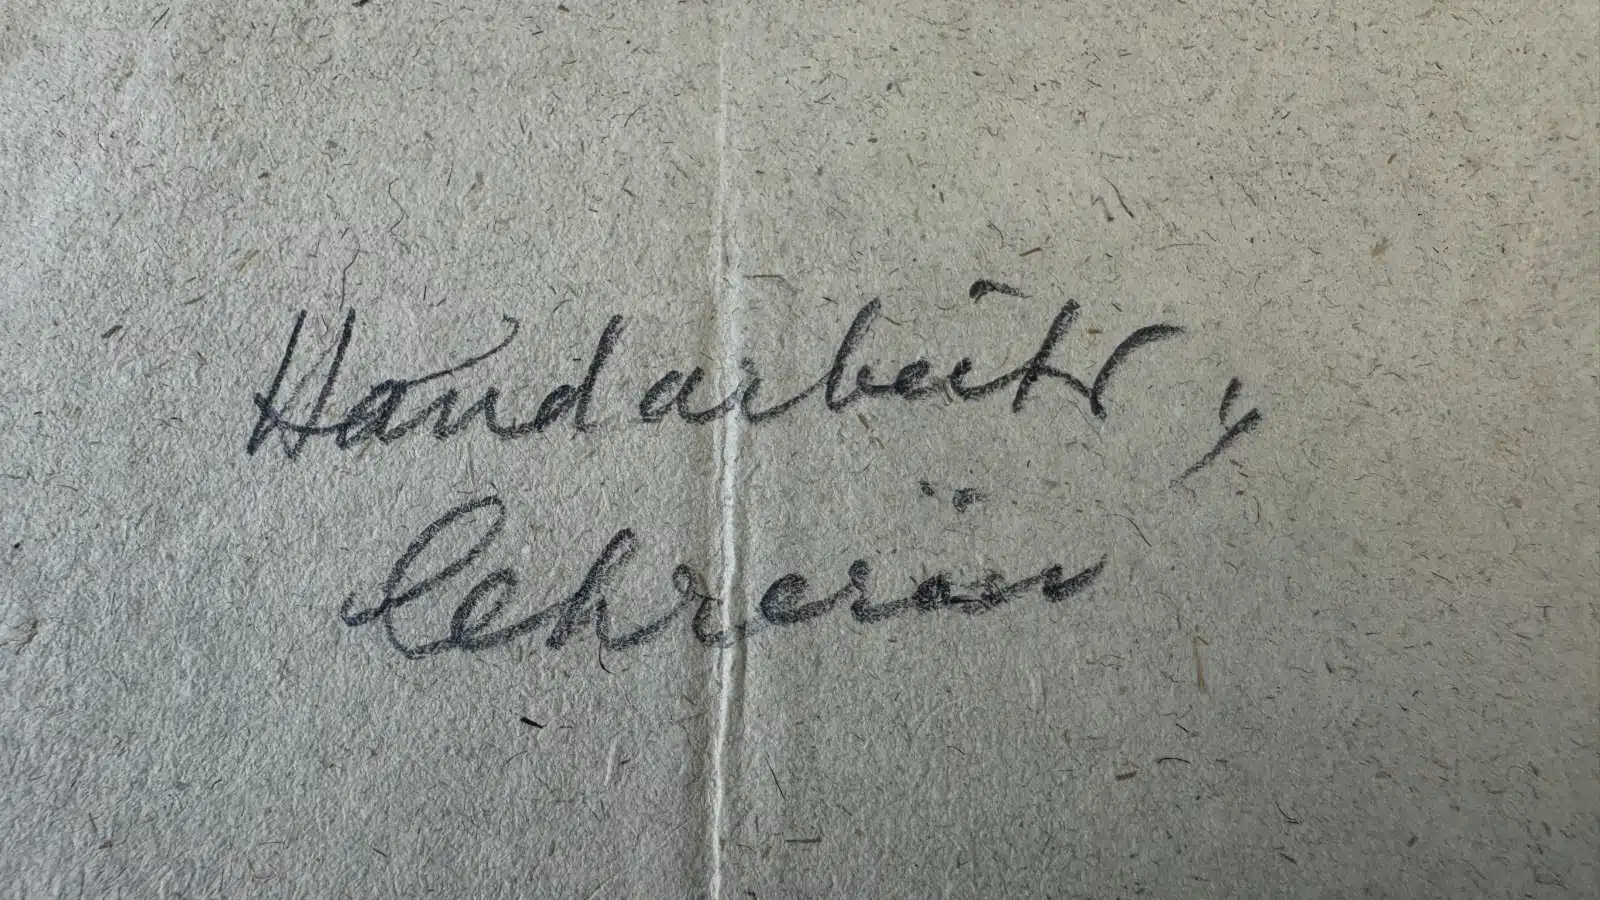 Handarbeits,
Lehrerin